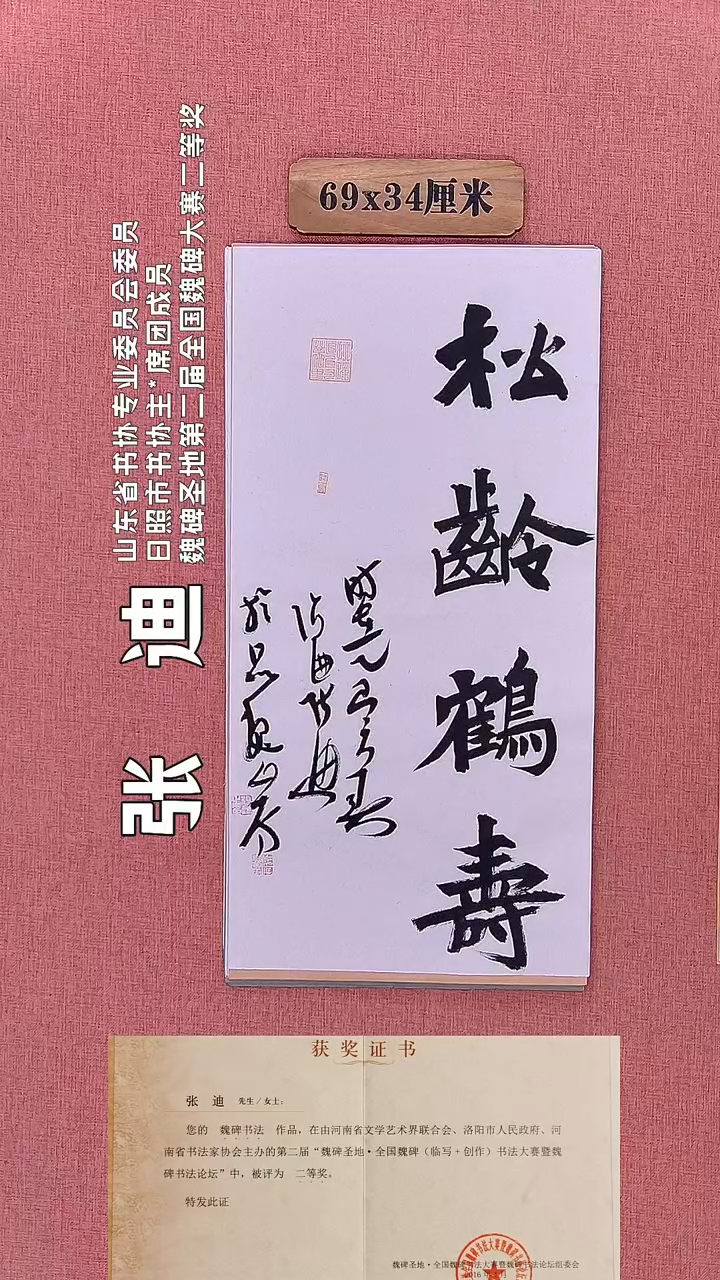 69x34厘米
松齡鶴壽
山东省书协专业委员会委员
日照市书协主*席团成员
魏碑圣地第二届全国魏碑大赛二等奖
张 迪
获奖证书
张 迪 先生/女士：
您的 魏碑书法 作品，在由河南省文学艺术界联合会、洛阳市人民政府、河
南省书法家协会主办的第二届“魏碑圣地·全国魏碑（临写+创作）书法大赛暨魏
碑书法论坛”中，被评为 二等奖。
特发此证
魏碑圣地·全国魏碑书法大赛暨魏碑书法论坛组委会